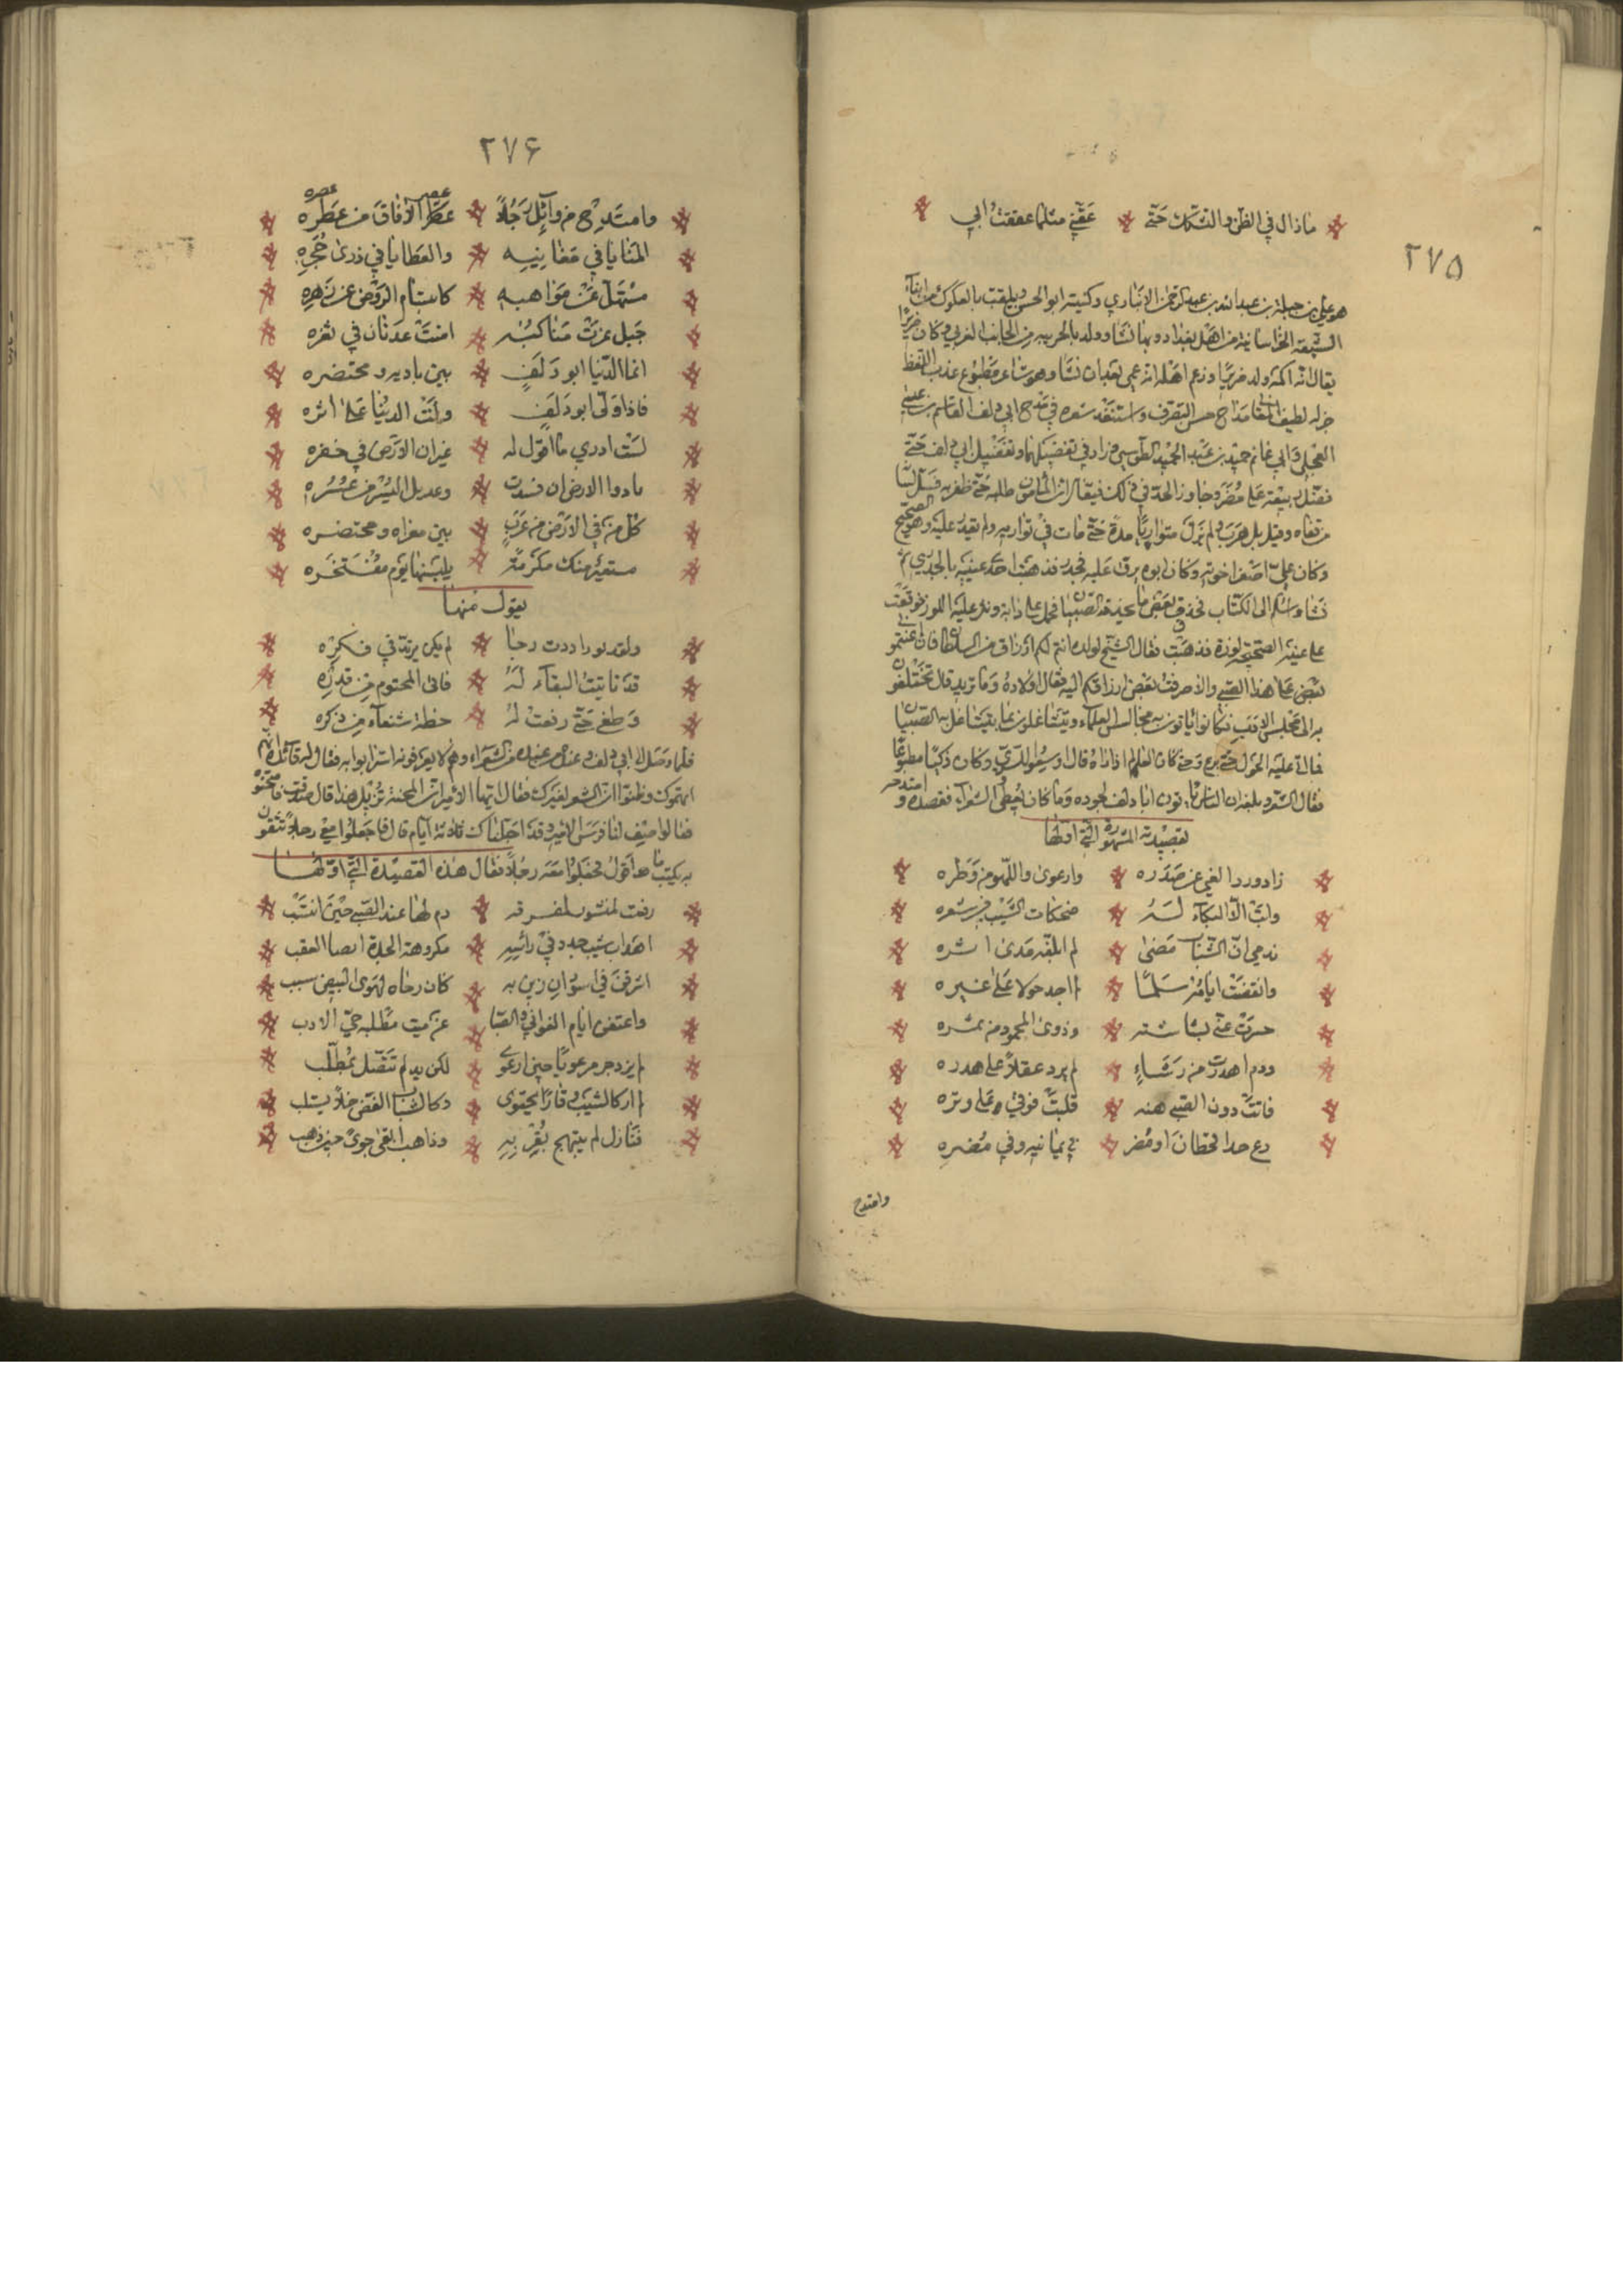 ٢٧٥
ماذال في الظن والشك حتى عقني مثلما عققت ابي
هو علي بن جبلة بن عبد الله بن عبد الرحمن الانباري وكنيته ابو الحسن ويلقب بالعكوك من ابناء
الشيعة الخراسانية من اهل بغداد وبها نشا وولد بالحربية من الجانب الغربي وكان ضريرا
يقال انه اكمه ولد ضريرا وزعم اهله انه عمي بعد ان نشا وهو شاعر مطبوع عذب اللفظ
جزله لطيف المعاني مداح حسن التصرف واستنفد شعره في مدح ابي دلف القاسم بن عيسى
العجلي وابي غانم حميد بن عبد الحميد الطوسي وزاد في تفضيلهما وتفضيل ابي دلف حتى
فضل ربيعة على مضر وجاوز الحد في ذلك فيقال ان المامون طلبه حتى ظفر به فسل لسانه
من قفاه وقيل بل هرب ولم يزل متواريا مدة حتى مات في تواريه ولم يقدر عليه وهو الصحيح
وكان علي اصغر اخوته وكان ابوه يرق عليه فجدر فذهبت احدى عينيه بالجدري ثم
نشا واسلم الى الكتاب فحذق بعض ما يحذقه الصبيان فحمل على دابة ونثر عليه اللوز فوقعت
على عينه الصحيحة لوزة فذهبت فقال الشيخ لولده انتم لكم ارزاق من السلطان فان اعنتموني
على هذا الصبي والا صرفت بعض ارزاقكم اليه فقال اولاده وما تريد قال تختلفون
به الى مجلس الادب فكانوا ياتون به مجالس العلماء ويتشاغلون بما يتشاغل به الصبيان
فما اتى عليه الحول حتى برع وحتى كان العالم اذا راه قال اوسعوا للبغوي وكان ذكيا مطبوعا
فقال الشعر وبلغه ان الناس ياتون ابا دلف لجوده وما كان يعطي الشعراء فقصده وامتدحه
بقصيدته المشهورة التي اولها
زاد ورد الغي عن صدره وارعوى واللهو من وطره
وابت الا البكاء له ضحكات الشيب في شعره
ندمي ان الشباب مضى لم ابلغه مدى اشره
وانقضت ايامه سلما لم اجد حولا على غيره
حسرت عني بشاشته وذوى المحمود من ثمره
ودم اهدرت من رشاء لم يرد عقلا على هدره
فاتت دون الصبي هنه قلبت فوقي على وتره
دع جدا قحطان او مضر في يمانيه وفي مضره
وامتدح
٢٧٦
وامتدح من وائل رجلا عصر الافاق من عصره
المنايا في مقانبه والعطايا في ذرى حجره
مستهل عن مواهبه كابتسام الروض عن زهره
جبل عزت مناكبه امنت عدنان في ثغره
انما الدنيا ابو دلف بين باديه ومحتضره
فاذا ولى ابو دلف ولت الدنيا على اثره
لست ادري ما اقول له غير ان الارض في خفره
يا دوا الارض ان فسدت وعديل اليسر من عسره
كل من في الارض من عرب بين مغزاه ومحتضره
مستعير منك مكرمة يلبسها يوم مفتخره
يقول منها
قد تانيت البقاء له فابى المحتوم من قدره
وطغى حتى رفعت له خطة شنعاء من ذكره
فلما وصل الى ابي دلف وعنده من الشعراء وهم لا يعرفونه استرابوا به فقال له قائل انهم
اتهموك وظنوا ان الشعر لغيرك فقال ايها الامير ان المحنة تزيل هذا قال صدقت فامتحنوه
فقالوا صف لنا فرس الامير وقد اجلناك ثلاثة ايام قال فاجعلوا معي رجلا تثقون
به يكتب ما اقول فجعلوا معه رجلا فقال هذه القصيدة التي اولها
ريعت لمنشور بمفرقه ذم لها عهد الصبى حين انتسب
اهداب شيب جدد في راسه مكروهة الجدة انضاء العقب
اشرقن في اسودان زين به كان دجاه لهوى البيض سبب
واعتقن ايام الغواني والصبا عن ميت مطلبه حي الادب
لم يزدجر مرعويا حين ارعوى لكن يد لم تتصل بمطلب
لم ار كالشيب وقارا يجتوى وكالشباب الغض ظلا يستلب
فنازل لم يبتهج بقربه وذاهب ابقى جوى حين ذهب